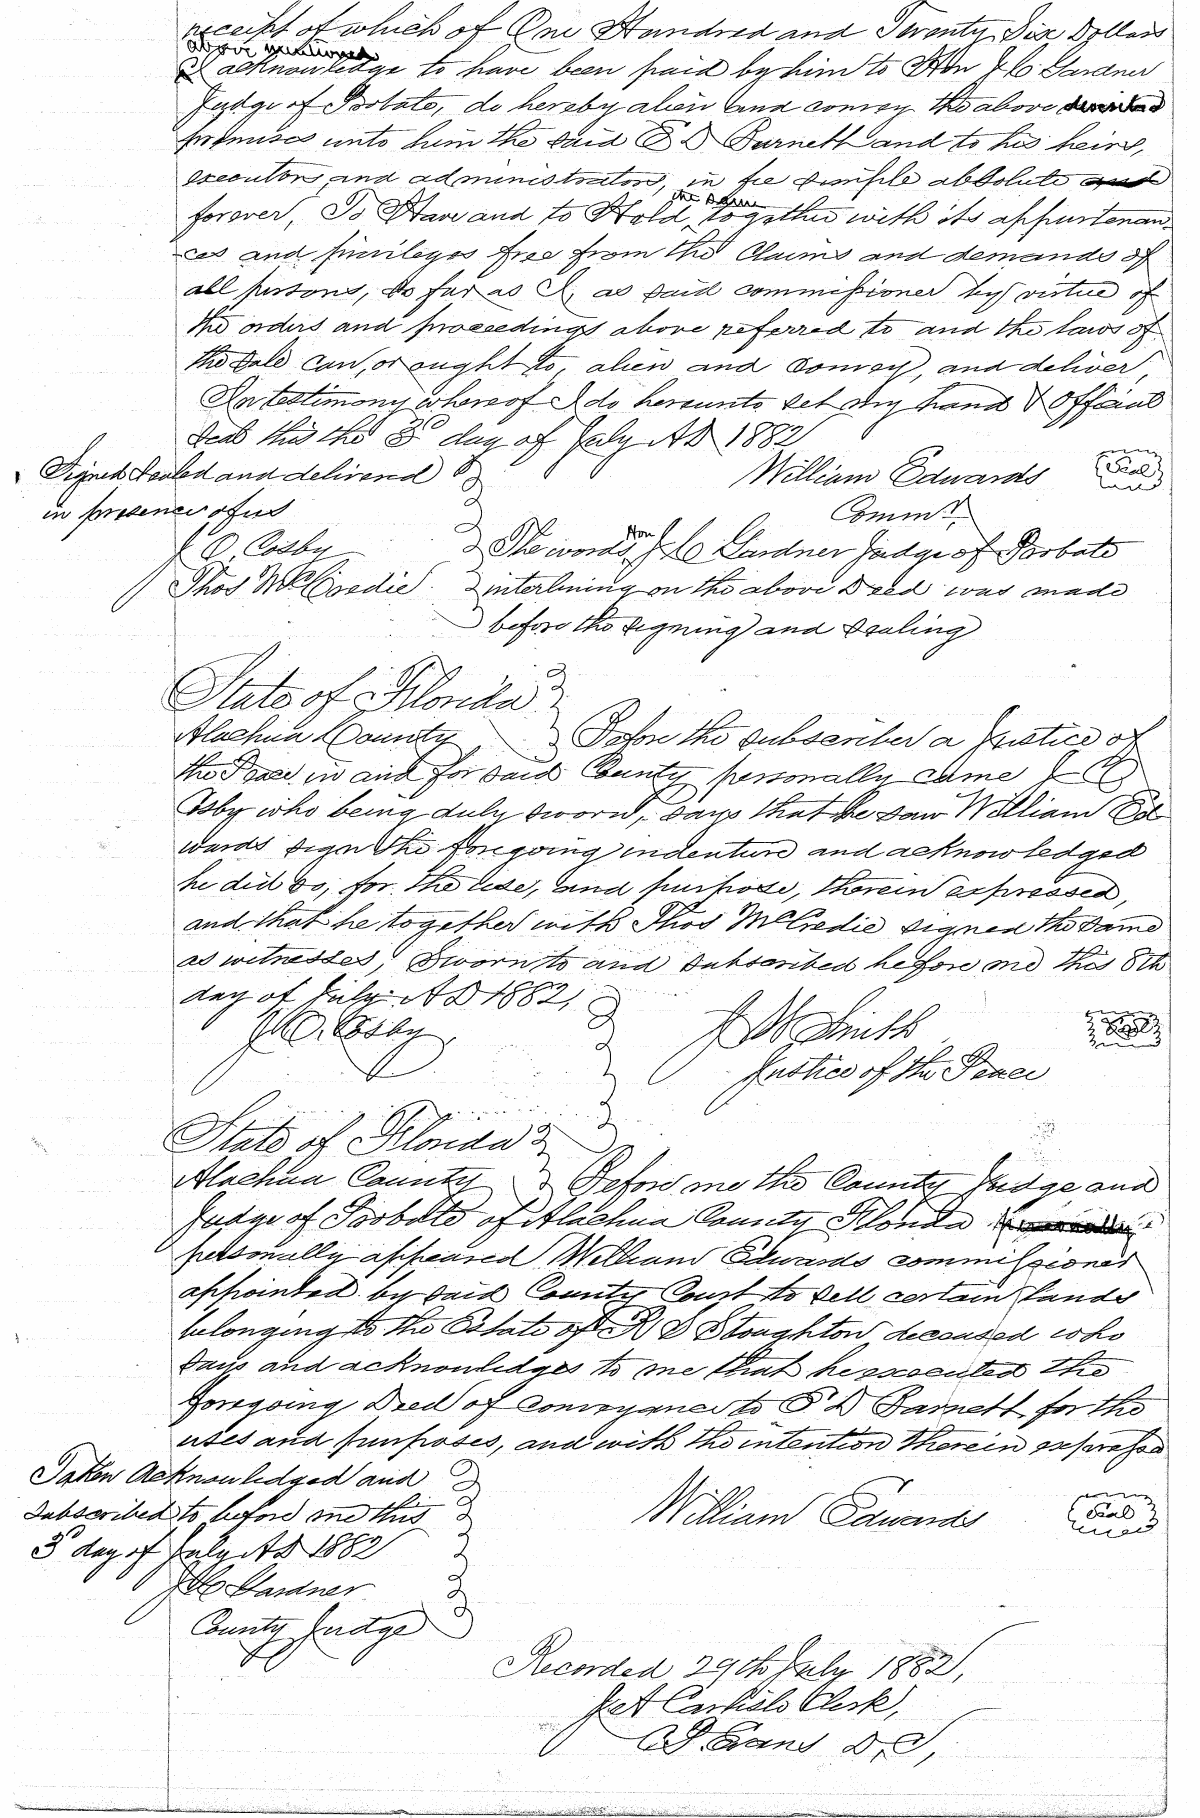 receipt of which of One Hundred and Twenty Six Dollars
above mentioned
I acknowledge to have been paid by him to Hon J C Gardner
Judge of Probate, do hereby alien and convey the above
premises unto him the said E D Barnett and to his heirs,
executors, and administrators, in fee simple absolute and
the same
forever, To Have and to Hold, together with its appurtenan-
ces and privileges free from the Claims and demands of
all persons, so far as I, as said commissioner by virtue of
the orders and proceedings above referred to and the laws of
the Sale can, or ought to, alien and convey, and deliver,
In testimony whereof I do hereunto set my hand & Official
Seal this the 3d day of July AD 1882
Signed Sealed and delivered
in presence of us
J C. Cosby
Thos McCredie
William Edwards Seal
Commr.
Hon
The words J C Gardner Judge of Probate
interlining on the above Deed was made
before the signing and sealing
State of Florida
Alachua County Before the subscriber a Justice of
the Peace in and for said County, personally came J C
Cosby who being duly sworn, says that he saw William Ed-
wards sign the foregoing indenture and acknowledged
he did so, for the use, and purpose, therein expressed,
and that he together with Thos McCredie signed the same
as witnesses, Sworn to and subscribed before me this 8th
day of July AD 1882,
J C. Cosby
J W Smith Seal
Justice of the Peace
State of Florida
Alachua County Before me the County Judge and
Judge of Probate of Alachua County Florida
personally appeared William Edwards commissioner
appointed by said County Court to sell certain lands
belonging to the Estate of R S Stoughton, deceased who
says and acknowledges to me that he executed the
foregoing Deed of conveyance to E D Barnett for the
uses and purposes, and with the intention therein expressed
Taken Acknowledged and
subscribed to before me this
3d day of July AD 1882
J C Gardner
County Judge
William Edwards Seal
Recorded 29th July 1882,
J A Carlisle Clerk,
Evans D, C,